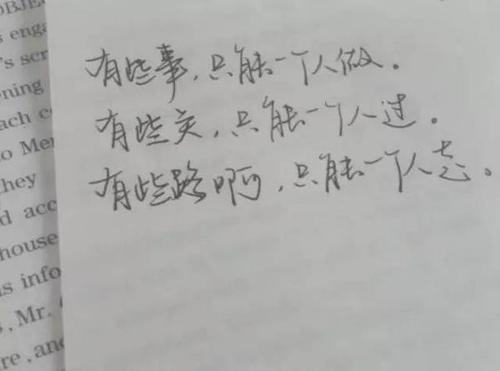 OBJE
s enga
's scr
ening
ach c
o Mer
they
d acc
house
s info
, Mr.
re, and
有些事，只能一个人做。
有些关，只能一个人过。
有些路啊，只能一个人走。